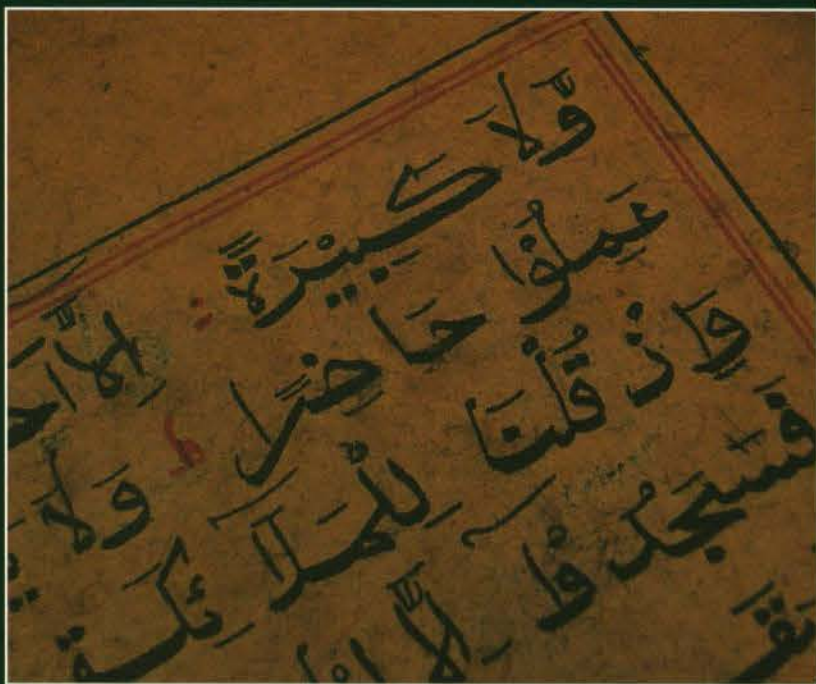 وَّلَا كَبِيْرَةً اِلَّا
عَمِلُوْا حَاضِرًا ط وَلَا
وَاِذْ قُلْنَا لِلْمَلَآئِكَة
فَسَجَدُوْٓا اِلَّا